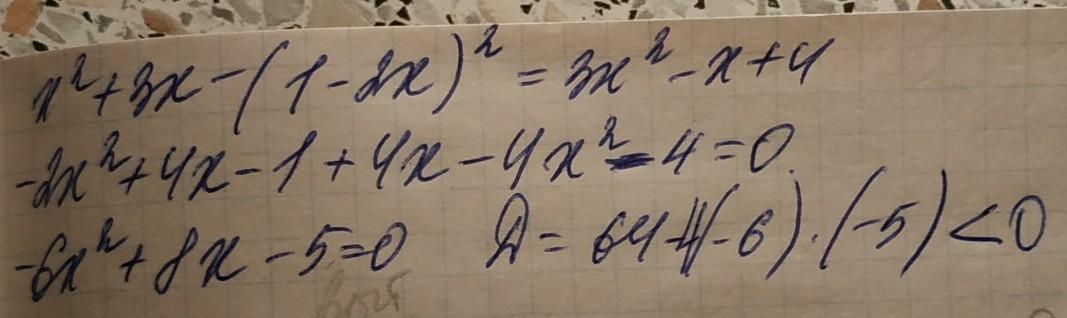 x² + 3x - (1 - 2x)² = 3x² - x + 4
-2x² + 4x - 1 + 4x - 4x² - 4 = 0
-6x² + 8x - 5 = 0 D = 64 - 4(-6) · (-5) < 0